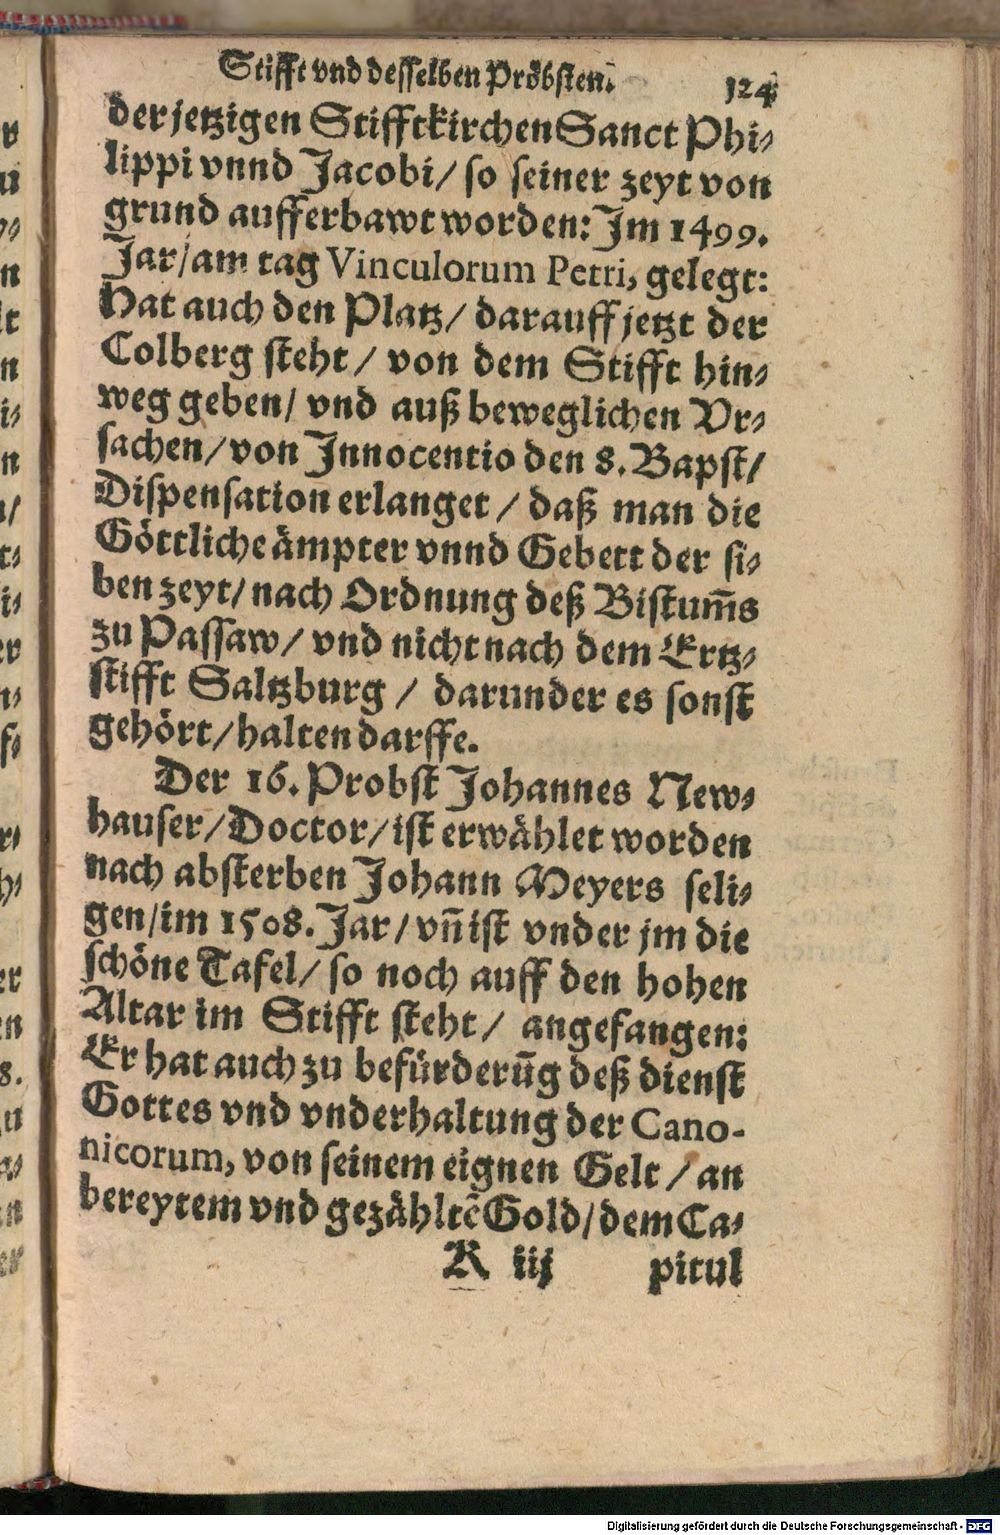 Stifft vnd desselben Pröbsten. 124
der jetzigen Stifftkirchen Sanct Phi-
lippi vnnd Jacobi/ so seiner zeyt von
grund aufferbawt worden: Im 1499.
Jar/am tag Vinculorum Petri, gelegt:
Hat auch den Platz/ darauff jetzt der
Colberg steht/ von dem Stifft hin-
weg geben/ vnd auß beweglichen Vr-
sachen/ von Innocentio den 8. Bapst/
Dispensation erlanget/ daß man die
Göttliche ämpter vnnd Gebett der si-
ben zeyt/ nach Ordnung deß Bistum̃s
zu Passaw/ vnd nicht nach dem Ertz-
stifft Saltzburg/ darunder es sonst
gehört/ halten darffe.
Der 16. Probst Johannes New-
hauser/ Doctor/ ist erwählet worden
nach absterben Johann Meyers seli-
gen/ im 1508. Jar/ vñ ist vnder jm die
schöne Tafel/ so noch auff den hohen
Altar im Stifft steht/ angefangen:
Er hat auch zu befürderũg deß dienst
Gottes vnd vnderhaltung der Cano-
nicorum, von seinem eignen Gelt/ an
bereytem vnd gezähltẽ Gold/ dem Ca-
R iij pitul
Digitalisierung gefördert durch die Deutsche Forschungsgemeinschaft - DFG